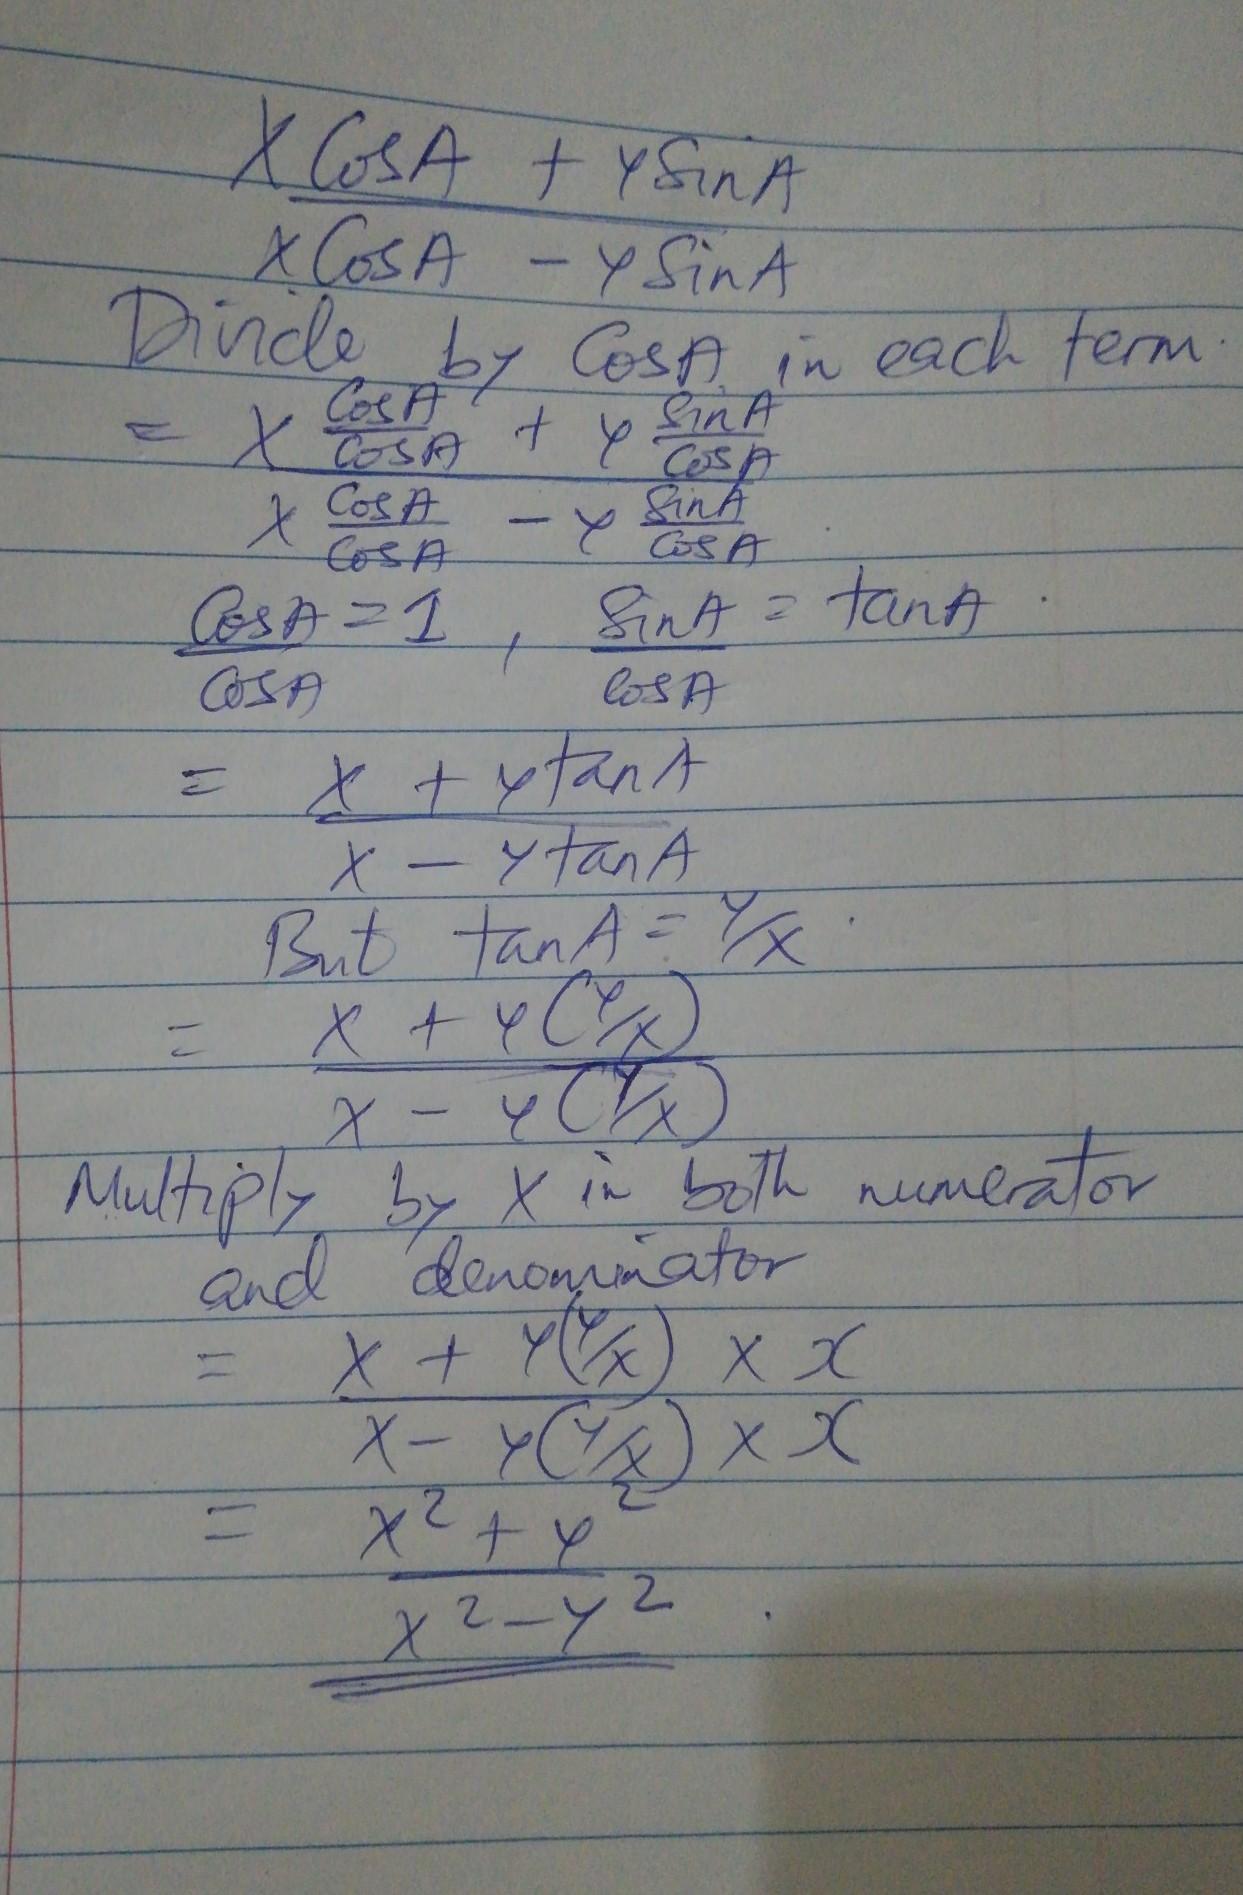 X CosA + y SinA
x CosA - y SinA
Divide by CosA in each term.
= X CosA/CosA + y SinA/CosA
x CosA/CosA - y SinA/CosA
CosA = 1 , SinA = tanA .
CosA CosA
= x + y tanA
x - y tanA
But tanA = y/x .
= x + y (y/x)
x - y (y/x)
Multiply by X in both numerator
and denominator
= x + y(y/x) × x
x - y(y/x) × x
= x² + y²
x² - y² .